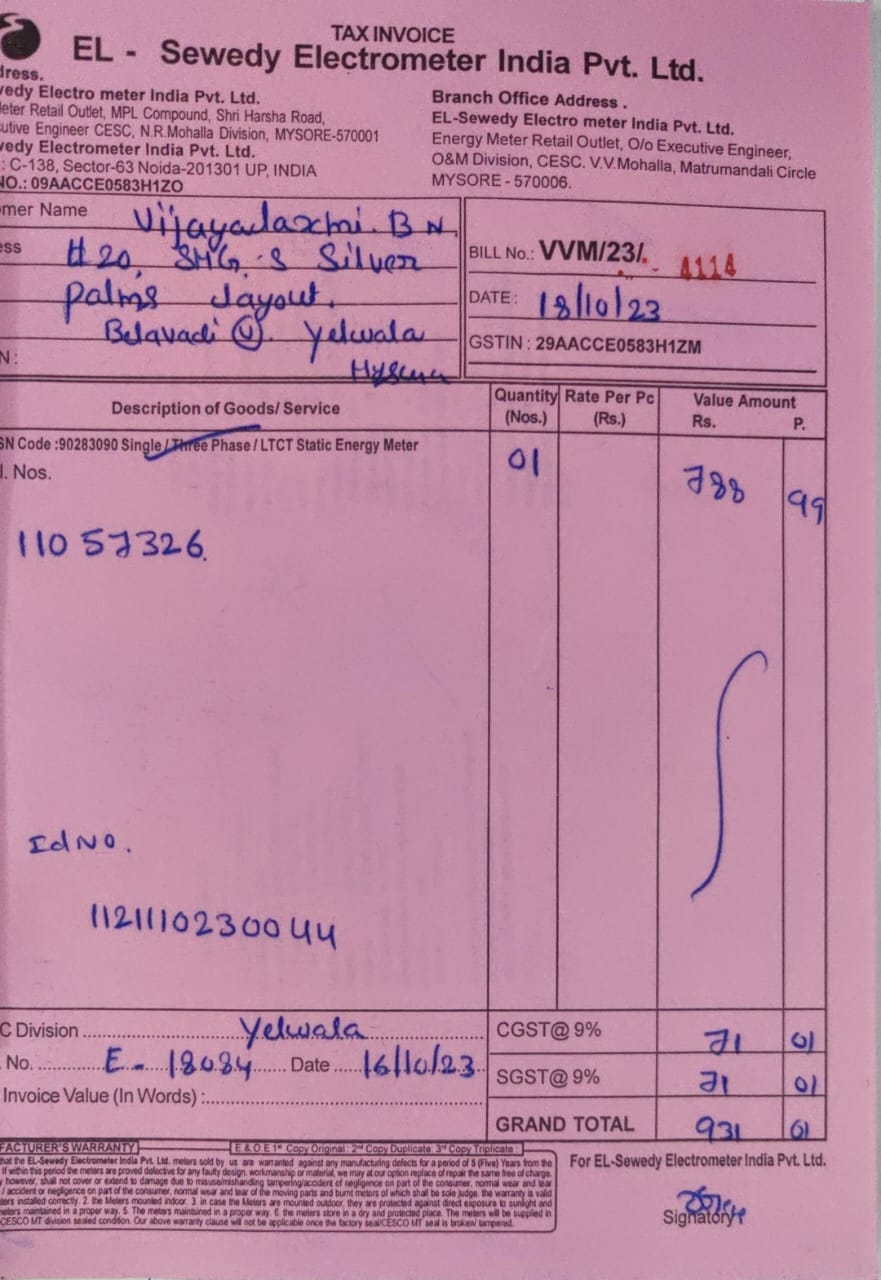 TAX INVOICE
EL - Sewedy Electrometer India Pvt. Ltd.
dress.
vedy Electro meter India Pvt. Ltd.
eter Retail Outlet, MPL Compound, Shri Harsha Road,
utive Engineer CESC, N.R.Mohalla Division, MYSORE-570001
vedy Electrometer India Pvt. Ltd.
: C-138, Sector-63 Noida-201301 UP, INDIA
NO.: 09AACCE0583H1ZO
Branch Office Address .
EL-Sewedy Electro meter India Pvt. Ltd.
Energy Meter Retail Outlet, O/o Executive Engineer,
O&M Division, CESC. V.V.Mohalla, Matrumandali Circle
MYSORE - 570006.
mer Name Vijayalaxmi. B N.
ess # 20, SMG.S Silver
palms Layout.
Belavadi (V). Yelwala
N: Mysuru
BILL No.: VVM/23/. 4114
DATE: 18/10/23
GSTIN : 29AACCE0583H1ZM
Description of Goods/ Service Quantity (Nos.) Rate Per Pc (Rs.) Value Amount Rs. P.
SN Code :90283090 Single / Three Phase / LTCT Static Energy Meter 01 788 99
l. Nos.
11057326.
Id No.
11211102300 44
C Division Yelwala
CGST@ 9% 71 01
No. E-18084 Date 16/10/23
SGST@ 9% 71 01
Invoice Value (In Words) :
GRAND TOTAL 931 01
FACTURER'S WARRANTY E & O E 1st Copy Original : 2nd Copy Duplicate 3rd Copy Triplicate :
hat the EL-Sewedy Electrometer India Pvt. Ltd. meters sold by us are warranted against any manufacturing defects for a period of 5 (Five) Years from the
If within this period the meters are proved defective for any faulty design, workmanship or material, we may at our option replace of repair the same free of charge.
however, shall not cover or extend to damage due to misuse/mishandling tampering/accident of negligence on part of the consumer, normal wear and tear
/ accident or negligence on part of the consumer, normal wear and tear of the moving parts and burnt meters of which shall be sole judge. the warranty is valid
ters installed correctly. 2. the Meters mounted indoor. 3. in case the Meters are mounted outdoor, they are protected against direct exposure to sunlight and
eters maintained in a proper way. 5. The meters maintained in a proper way. 6. the meters store in a dry and protected place. The meters will be supplied in
CESCO MT division sealed condition. Our above warranty clause will not be applicable once the factory seal/CESCO MT seal is broken/ tampered.
For EL-Sewedy Electrometer India Pvt. Ltd.
Signatory